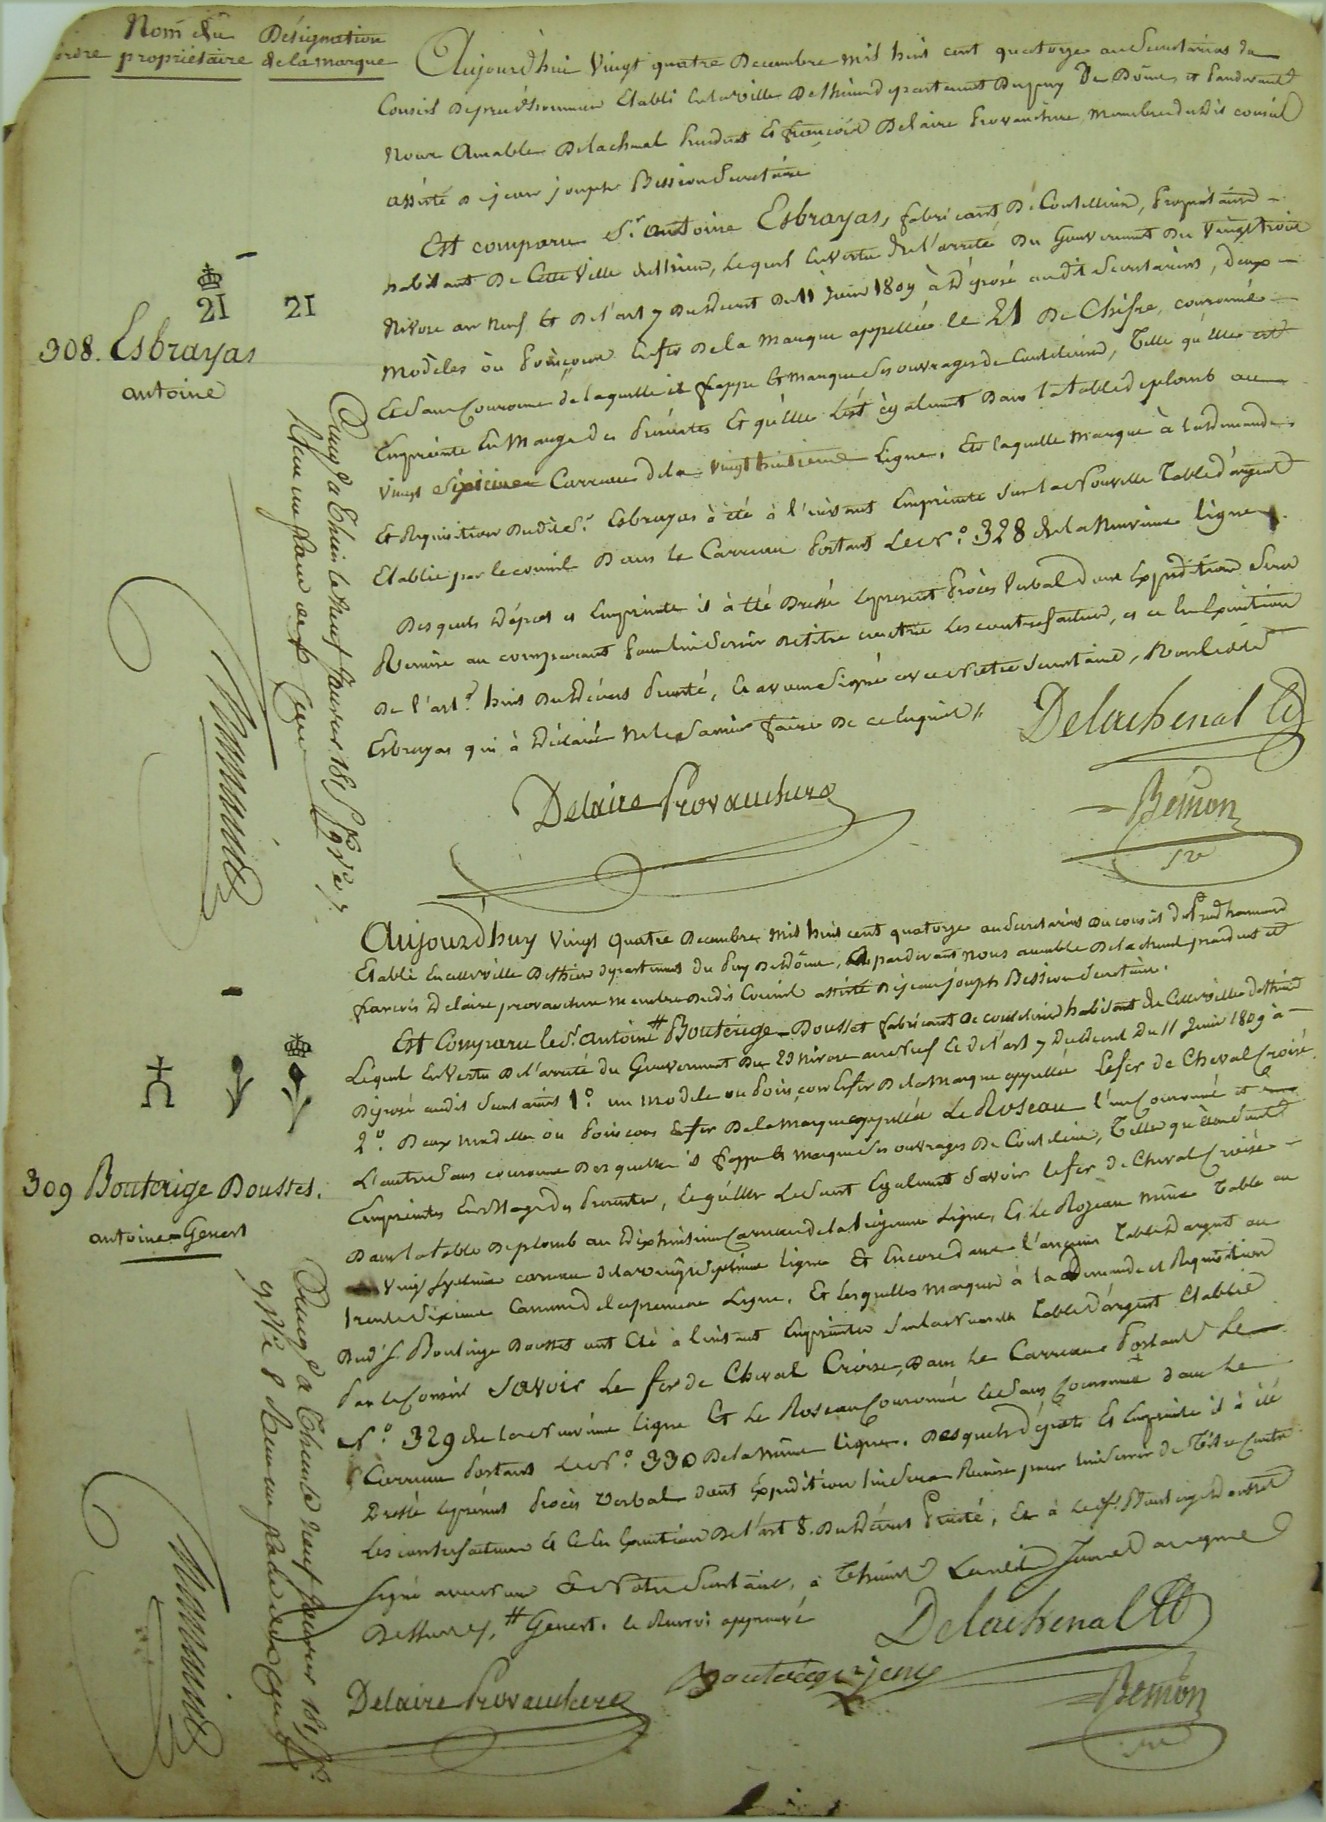 Nom du Désignation
ordre propriétaire de la marque
Aujourd'hui Vingt quatre Decembre mil huit cent quatorze au Secretariat du
Conseil de prud'hommes Etabli en la ville de thiers departement du puy De Dôme et Pardevant
Nous Amable Delachenal President et françois Delaire Provanchere, membre dudit conseil
assisté de jean joseph Besson Secretaire
Est comparu Sr. antoine Esbrayas, fabricant de Coutellerie, Propriétaire
habitant de Cette Ville de thiers, Lequel En Vertu de l'arrêté du Gouvernement du Vingt trois
Nivose an neuf et de l'art 7 du Decret du 11 Juin 1809 à Déposé audit Secretariat, deux
modèles ou Poinçons En fer de la marque appellée le 21 de Chifre, couronné
et Sans Couronne de laquelle il frappe et marque Ses ouvrages de Coutellerie, Telle qu'elle est
Empreinte En Marge des Presentes Et qu'elle l'est également dans la table de plomb au
vingt Sixieme Carreau de la vingt huitieme Ligne, Et laquelle marque à la demande
et Requisition dudit Sr. Esbrayas à été à l'instant Empreinte Sur la Nouvelle Table d'argent
Etablie par le conseil dans le Carreau Portant le No. 328 de la Neuvieme ligne.
Desquels Dépots et Empreinte il à été Dressé le present Procès Verbal dont Expedition Sera
Remise au comparant Pour lui Servir de titre contre les contrefacteurs, et ce En Execution
de l'art. huit du Décret Precité, et avons Signé avec Notre Secretaire, Non ledit
Esbrayas qui à Déclaré ne le Savoir faire de ce Enquis /.
Delachenal
Delaire Provanchere
Besson
Sre
21 21
308. Esbrayas
antoine
Enreg. à Thiers le Neuf Janvier 1815
Aujourd'huy Vingt quatre Decembre mil huit cent quatorze au Secretariat du conseil de Prud'hommes
Etabli En cette ville de thiers departement du Puy de Dôme, pardevant nous amable Delachenal president et
françois Delaire provanchere membre dudit Conseil assisté de jean joseph Besson Secretaire.
Est Comparu le Sr. antoine # Bouterige-Dousset fabricant de coutellerie habitant de Cette ville de thiers
Lequel En Vertu de l'arrêté du Gouvernement du 23 nivose an neuf et de l'art 7 du Decret du 11 Juin 1809 à
Déposé audit Secretariat 1o. un modele ou Poinçon En fer de la Marque appellée le fer de Cheval Croisé
2o. Deux modelles ou Poinçons En fer de la marque appellée Le Roseau l'un Couronné et
L'autre Sans couronne desquelles il frappe et marque Ses ouvrages de Coutellerie, Telles qu'elles Sont
Empreintes En Marge des Presentes, et qu'elles le Sont Egalement Savoir le fer de Cheval Croisé
dans la table de plomb au dixhuitieme Carreau de la Ligne, Et Le Rozeau même Table au
Vingt Septieme carreau de la vingt Septieme ligne Et Encore dans l'ancienne Table d'argent au
trente Sixieme Carreau de la premiere Ligne, Et lesquelles marques à la Demande et Requisition
dud. S. Bouterige Dousset ont été à l'instant Empreintes Sur la Nouvelle Table d'argent Etablie
Par le Conseil Savoir Le fer de Cheval Croisé, dans Le Carreau Portant le
No. 329 de la Neuvième ligne Et Le Roseau Couronné et Sans Couronne dans le
Carreau Portant le No. 330 de la même ligne. Desquels dépots Et Empreinte il à été
Dressé le présent Procès Verbal dont Expedition lui Sera Remise pour lui Servir de Titre Contre
les contrefacteurs et Ce En Execution de l'art 8. du Décret Précité, Et à Led. S. Bouterige Dousset
Signé avec nous Et Notre Secretaire, à Thiers
# Genest. le Renvoi approuvé
Delachenal
Delaire Provanchere
Besson
309 Bouterige Dousset.
antoine-Genest
Enreg. à Thiers le Neuf Janvier 1815